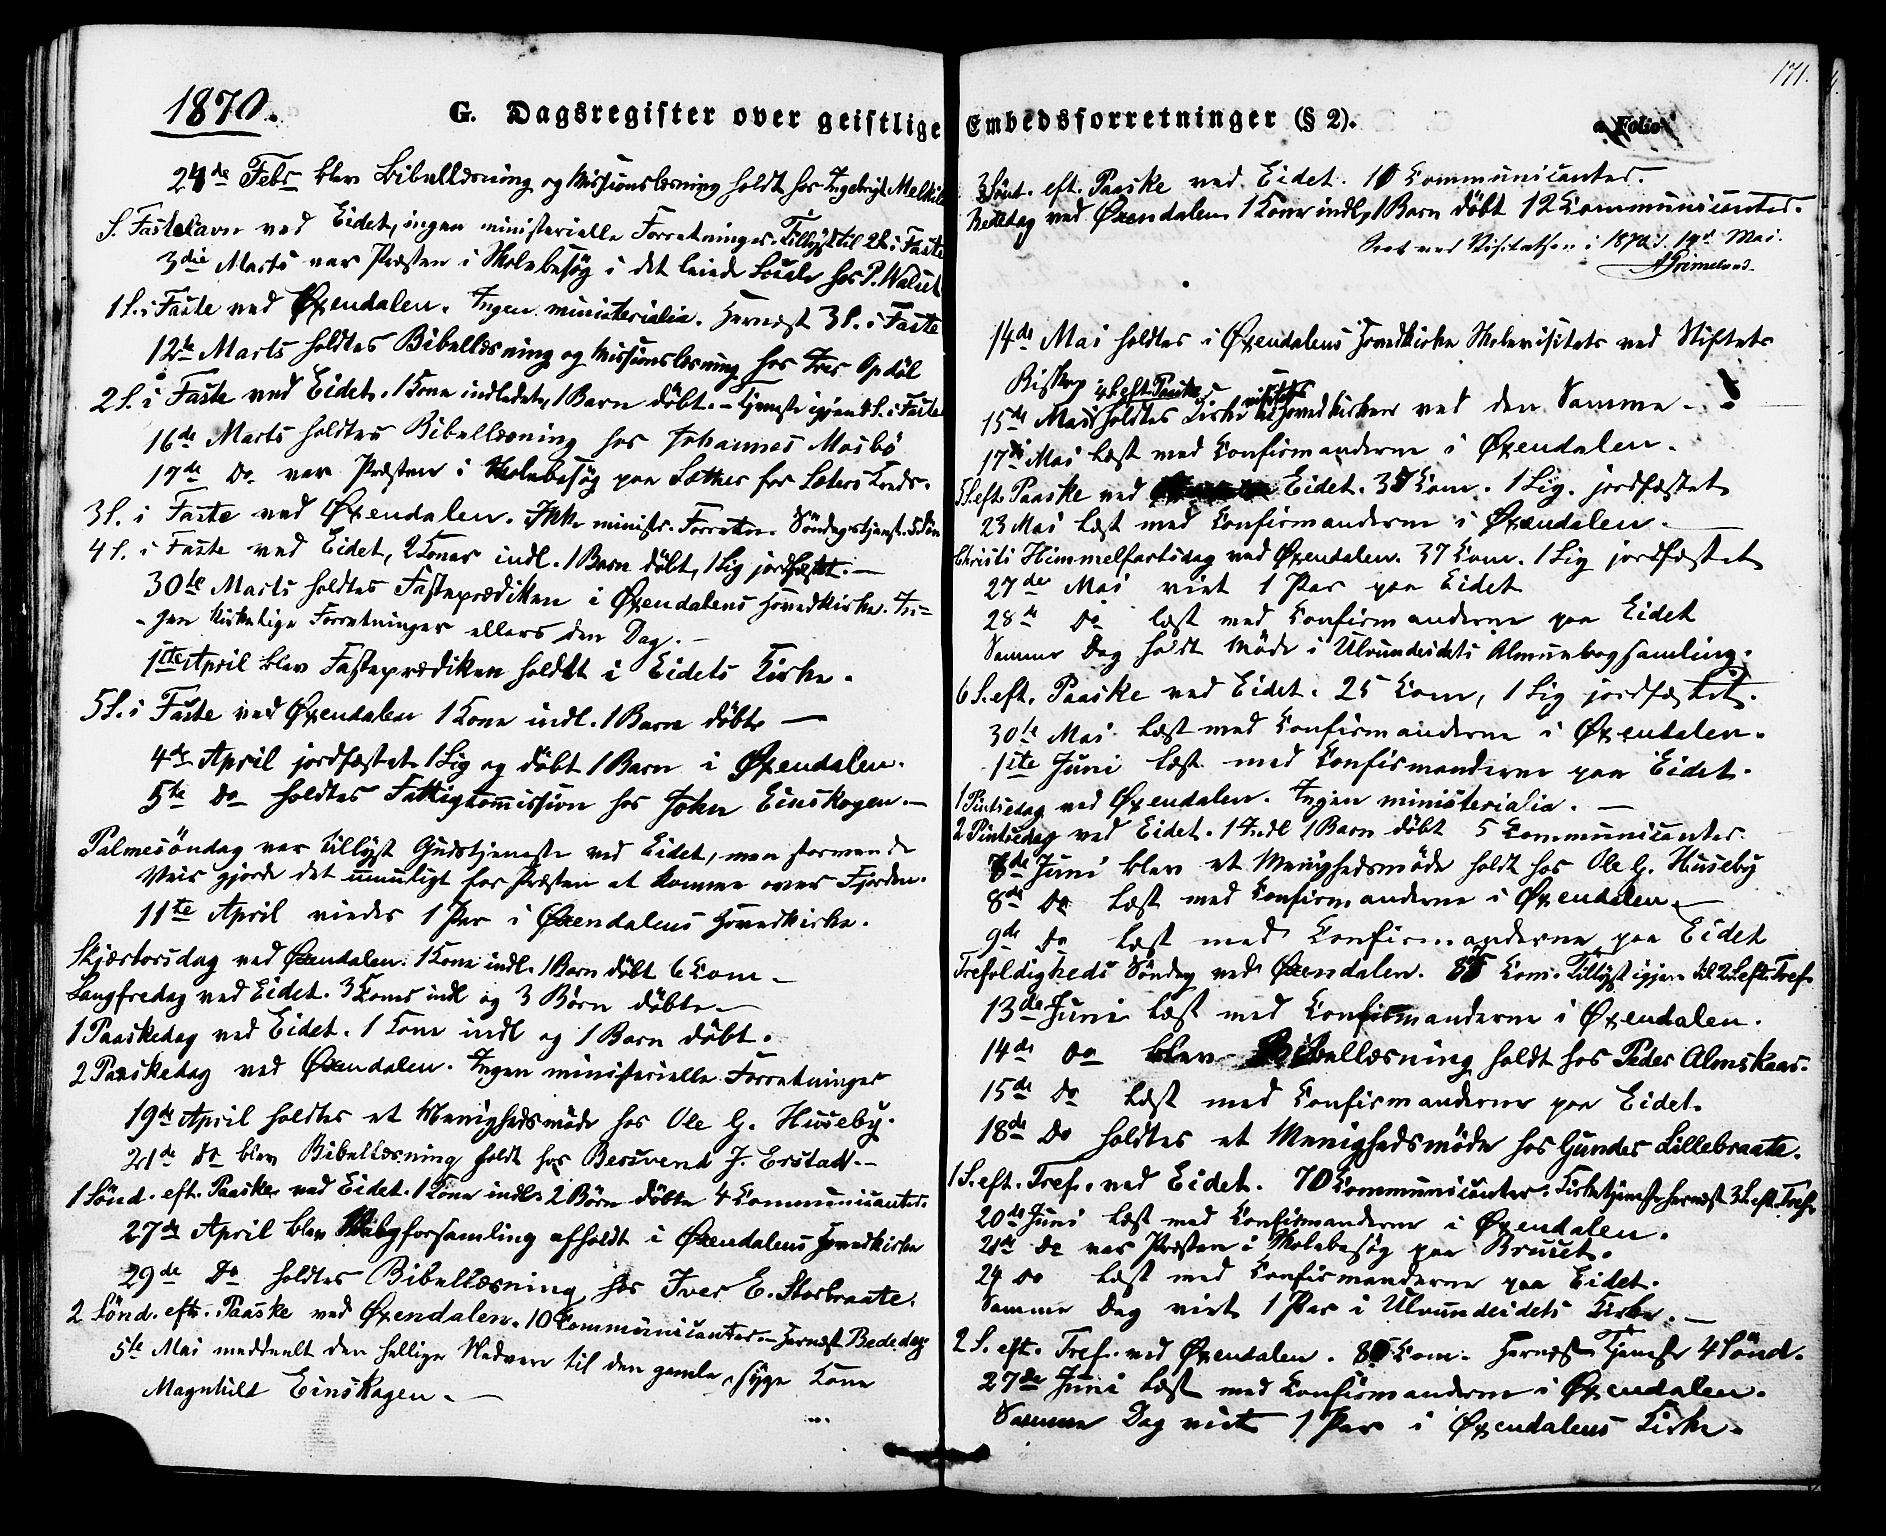 1870.
G. Dagsregister over geistlige
24de Febr blev Bibellæsning og Missionslæsning holdt hos Ingebrigt Melkild
S. Fastelavn ved Eidet, ingen ministerielle Forretninger. Tillyst til 2S. i Faste
3die Marts var Præsten i Skolebesøg i det leiede Locale hos P. Walset
1S. i Faste ved Øxendalen. Ingen ministerialia. Hernæst 3S. i Faste
12te Marts holdtes Bibellæsning og Missionslæsning hos Iver Opdøl
2S. i Faste ved Eidet. 1 Kone indledet, 1 Barn døbt. – Tjeneste igjen 4S. i Faste
16de Marts holdtes Bibellæsning hos Johannes Mosbø
17de Do var Præsten i Skolebesøg paa Sæther for Sæters Kreds.
3S. i Faste ved Øxendalen. Ikke ministr. Forretn. Søndagstjenest. 5 Søn
4S. i Faste ved Eidet, 2 Koner indl. 1 Barn døbt, 1 Lig jordfæstet. –
30te Marts holdtes Fasteprædiken i Øxendalens Hovedkirke. In-
-gen kirkelige Forretninger ellers den Dag. –
1ste April blev Fasteprædiken holdt i Eidets Kirke.
5S. i Faste ved Øxendalen 1 Kone indl. 1 Barn døbt –
4de April jordfæstet 1 Lig og døbt 1 Barn i Øxendalen.
5te Do holdtes Fattigkommission hos John Einskogen. –
Palmesøndag var tillyst Gudstjeneste ved Eidet, men stormende
Veir gjorde det umuligt for Præsten at komme over Fjorden.
11te April viedes 1 Par i Øxendalens Hovedkirke.
Skjærtorsdag ved Øxendalen. 1 Kone indl. 1 Barn døbt 6 Com –
Langfredag ved Eidet. 3 Koner indl og 3 Børn døbte –
1 Paaskedag ved Eidet. 1 Kone indl og 1 Barn døbt.
2 Paaskedag ved Øxendalen. Ingen ministerielle Forretninger
19de April holdtes et Menighedsmøde hos Ole G. Huseby.
21de Do blev Bibellæsning holdt hos Bersvend J. Erstad. –
1 Sønd. eft. Paaske ved Eidet. 1 Kone indl. 2 Børn døbte 4 Communicanter.
27de April blev Valgforsamling afholdt i Øxendalens Hovedkirke
29de Do holdtes Bibellæsning hos Iver E. Storbraate.
2 Sønd. eft. Paaske ved Øxendalen. 10 Communicanter. – Hernæst Bededag
5te Mai meddeelt den hellige Nadvere til den gamle, syge Kone
Magnhild Einskogen. –
171.
Embedsforretninger (§ 2).
a Folio
3 Sønt. eft. Paaske ved Eidet. 10 Communicanter.
Bededag ved Øxendalen 1 Kone indl, 1 Barn døbt 12 Communicanter.
Seet ved Visitatsen i 1870 d. 14de Mai.
AGrimelund.
14de Mai holdtes i Øxendalens Hovedkirke Skolevisitats ved Stiftets
Biskop
4S. eft. Paaske
15de Mai holdtes Kirkevisitats i Hovedkirken ved den Samme –
17de Mai læst med Confirmanderne i Øxendalen.
5S. eft. Paaske ved Eidet. 37 Com. 1 Lig. jordfæstet
23 Mai læst med Confirmanderne i Øxendalen. –
Christi Himmelfartsdag ved Øxendalen. 37 Com. 1 Lig jordfæstet
27de Mai viet 1 Par paa Eidet
28de Do læst med Confirmanderne paa Eidet
Samme Dag holdt Møde i Ulvundeidets Almuebogsamling.
6S. eft. Paaske ved Eidet. 25 Com, 1 Lig jordfæstet.
30te Mai læst med Confirmanderne i Øxendalen.
1ste Juni læst med Confirmanderne paa Eidet.
1 Pintsedag ved Øxendalen. Ingen ministerialia. –
2 Pintsedag ved Eidet. 1 Indl 1 Barn døbt 5 Communicanter.
7de Juni blev et Menighedsmøde holdt hos Ole G. Huseby
8de Do læst med Confirmanderne i Øxendalen. –
9de Do læst med Confirmanderne paa Eidet
Trefoldigheds Søndag ved Øxendalen. 85 Com. Tillyst igjen til 2S. eft. Tref.
13de Juni læst med Confirmanderne i Øxendalen.
14de Do blev Bibellæsning holdt hos Peder Almskaar.
15de Do læst med Confirmanderne paa Eidet.
18de Do holdtes et Menighedsmøde hos Gunder Lillebraate.
1S. eft. Tref. ved Eidet. 70 Communicanter. Kirketjeneste hernæst 3S. eft. Tref.
20de Juni læst med Confirmanderne i Øxendalen.
21de Do var Præsten i Skolebesøg paa Bruset.
24 Do læst med Confirmanderne paa Eidet.
Samme Dag viet 1 Par i Ulvundeidets Kirke. –
2S. eft. Tref. ved Øxendalen. 80 Com. Hernæst Tjeneste 4 Sønd.
27de Juni læst med Confirmanderne i Øxendalen.
Samme Dag viet 1 Par i Øxendalens Kirke.